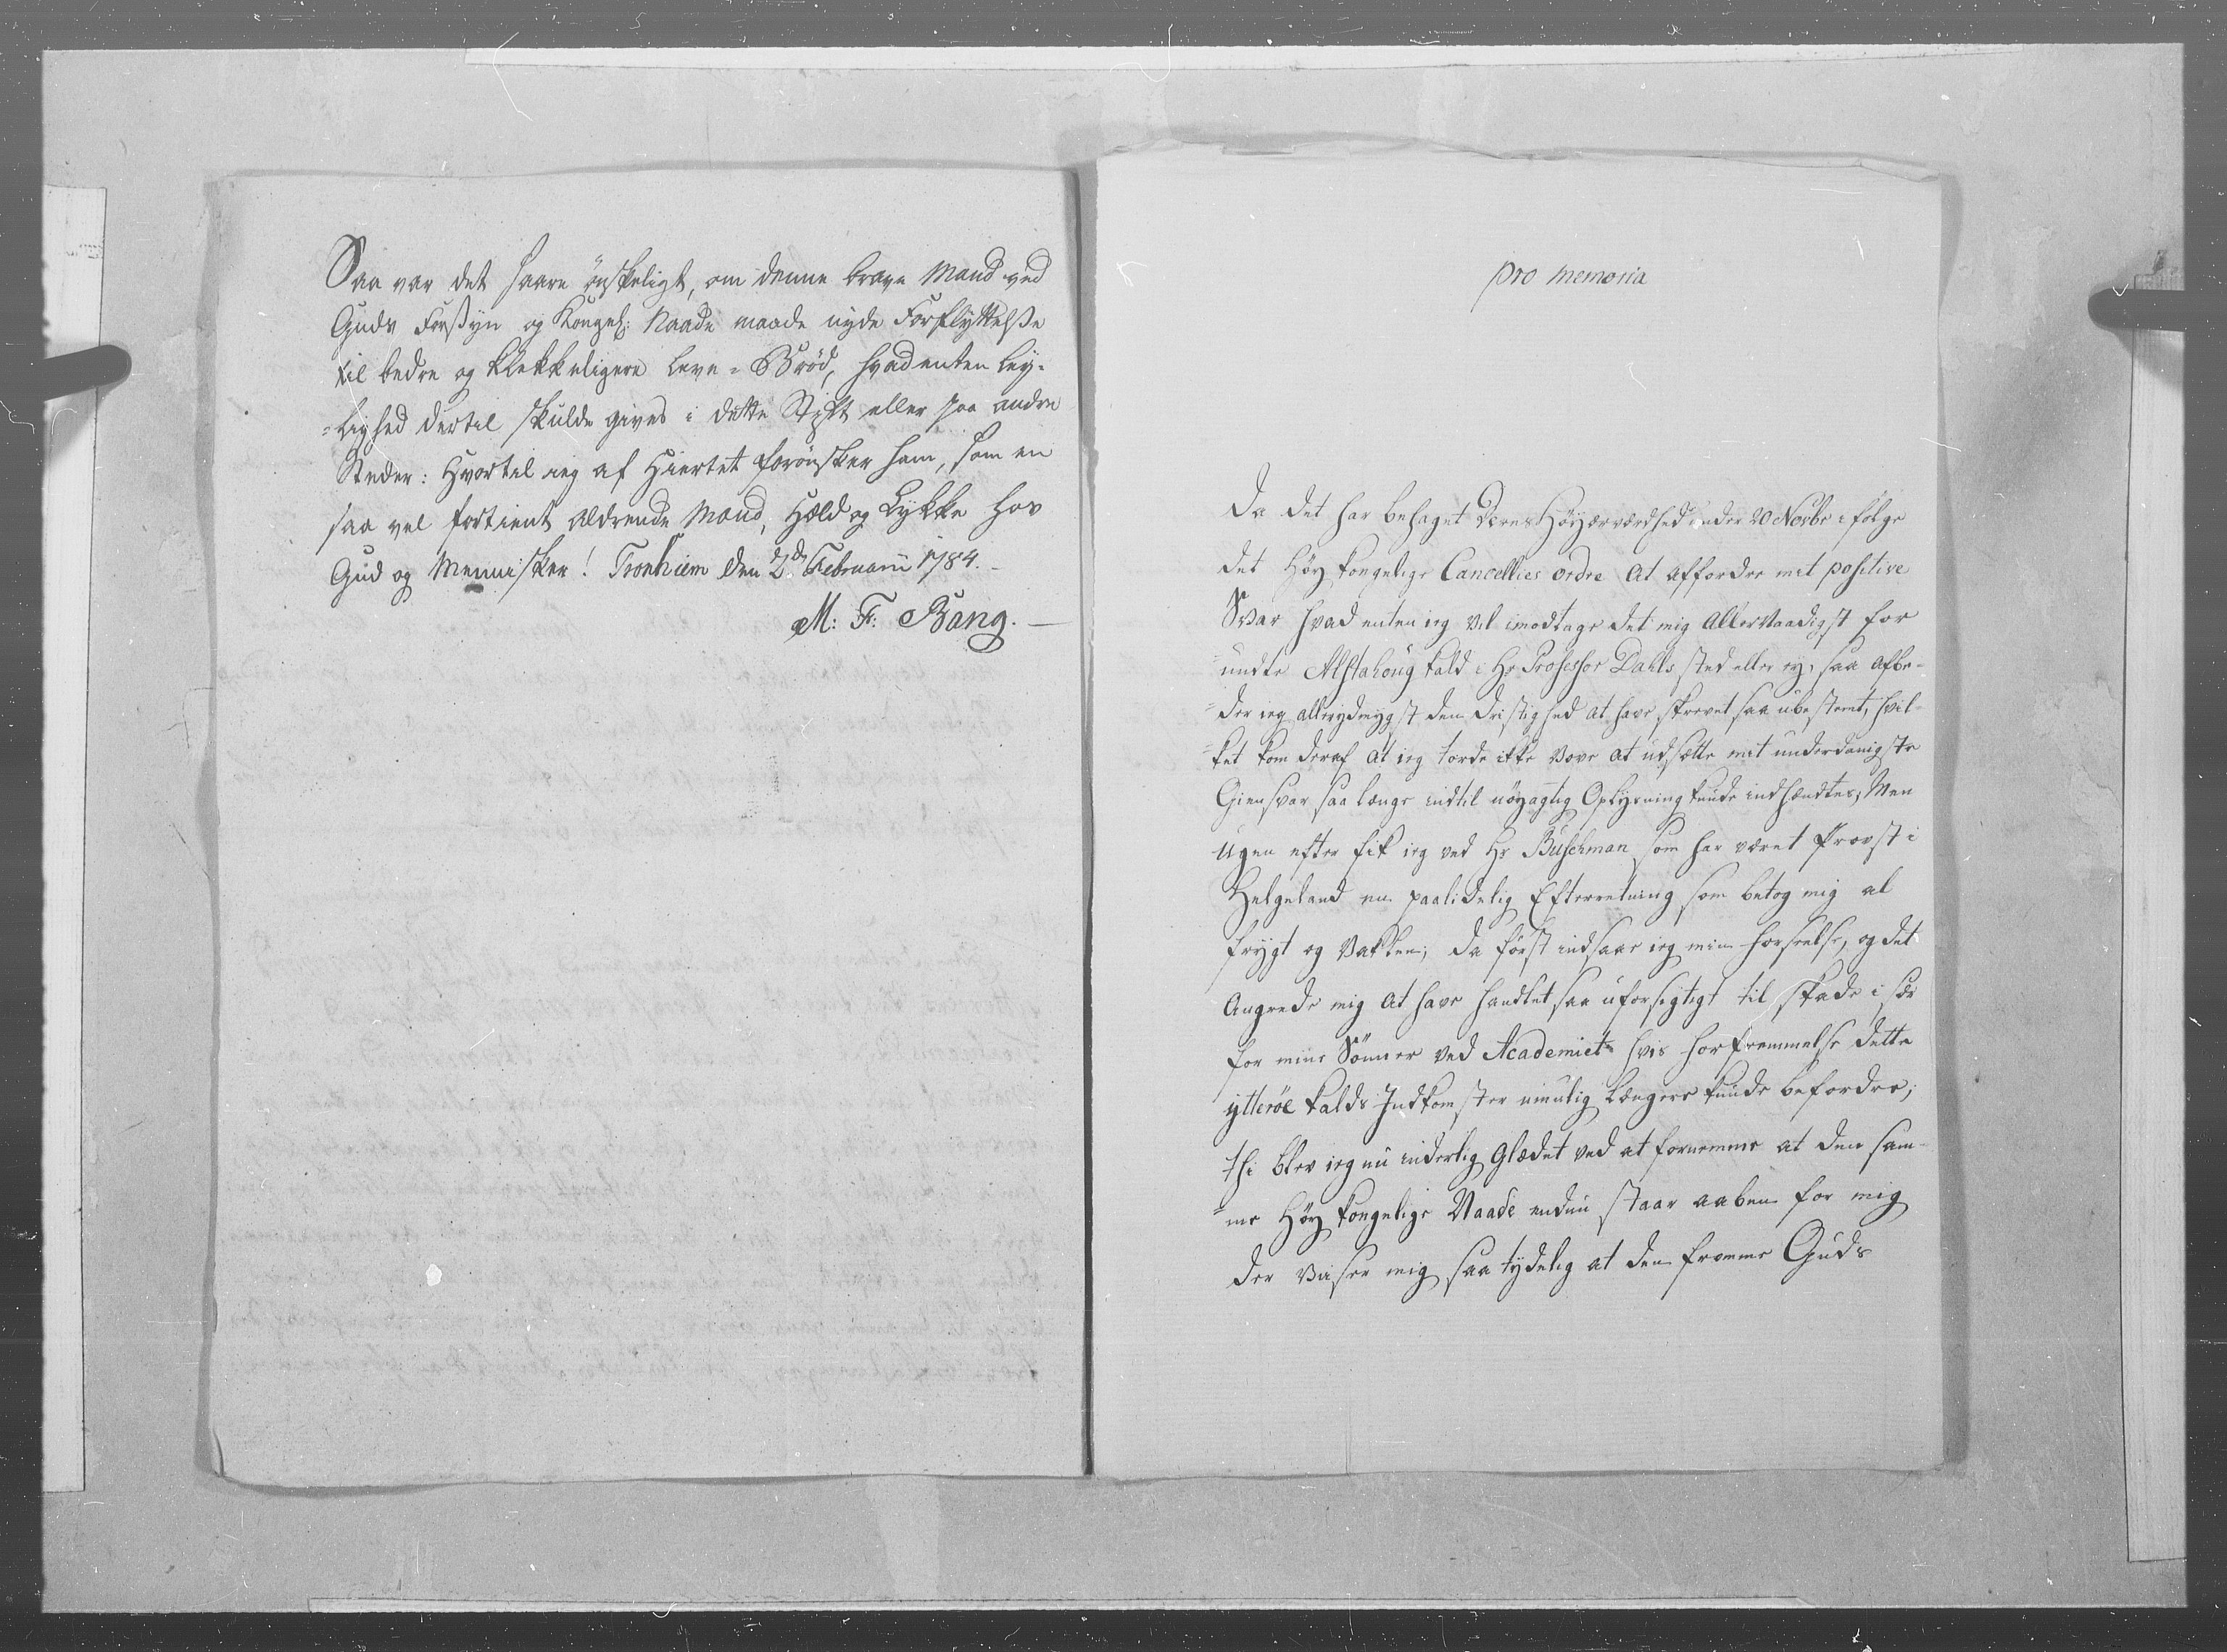 Saa var det saare önskeligt, om denne brave Mand ved
Guds Forsyn og Kongel: Naade maade nyde Forflyttelsse
til bedre og klekkeligere Leve=Bröd, hvadenten Ley=
=lighed dertil skulde gives i dette Stift eller paa andre
Steder: Hvortil ieg af Hiertet forönsker ham, som en
saa vel fortient aldrende Mand, Held og Lykke hos
Gud og Mennisker! Tronhiem den 2d Februarii 1784.
M: F: Bang.
pro memoria
Da det har behaget Deres Höyærværdhed under 20 Novbr i følge
det Höy kongelige Cancellies ordre at affordre mit positive
Svar hvad enten ieg vil imodtage det mig Allernaadigst for
=undte Alstahoug kald i Hr Professor Dahls sted eller ey, saa afbe=
=der ieg allerydmygst den dristighed at have skrevet saa ubestemt, hvil=
=ket kom deraf at ieg torde ikke vove at udsætte mit underdanigste
Giensvar saa længe indtil nöyagtig Oplysning kunde indhændtes, Men
Ugen efter fik ieg ved Hr Buschman som har været Provst i
Helgeland en paalidelig Efterretning som betog mig al
frygt og Vakken; da först indsaae ieg min forseelse, og det
Angrede mig at have handlet saa uforsigtigt til skade i sær
for mine Sönner ved Academiet hvis forfremmelse dette
ytteröe kalds Indkomster umulig længere kunde befordre;
thi blev ieg nu inderlig glædet ved at fornemme at den sam=
=me Höy kongelige Naade endnu staar aaben for mig
der viiser mig saa tydelig at den fromme Guds